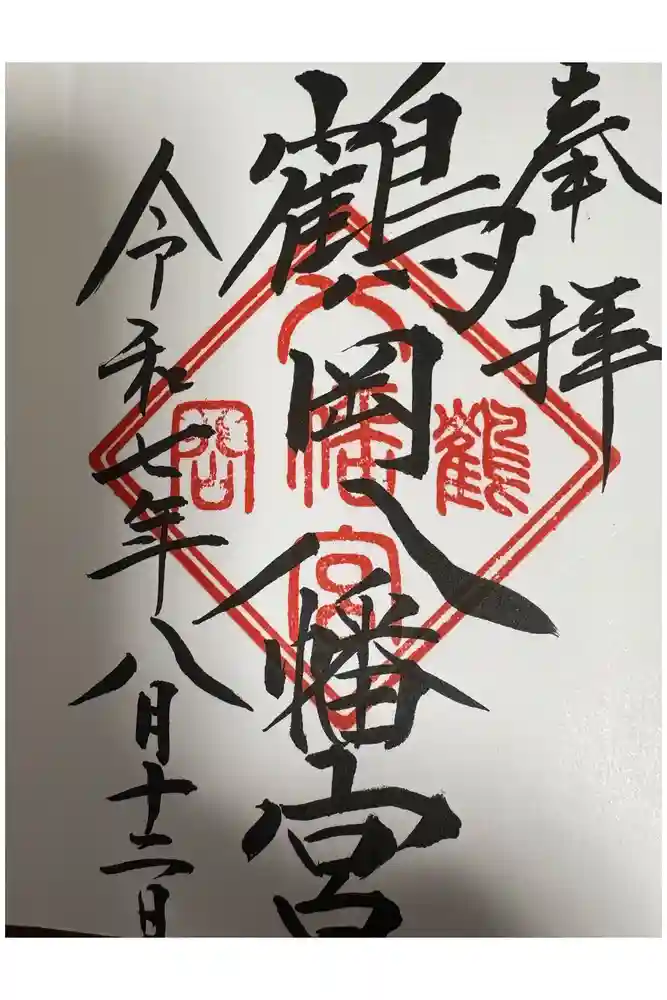 奉拝
鶴岡八幡宮
令和七年八月十二日
鶴
八幡宮
岡